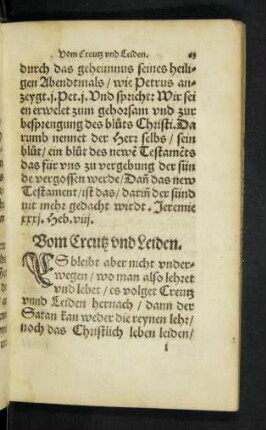 Vom Creutz vnd Leiden.
durch das geheimnus seines heili-
gen Abendtmals / wie Petrus an-
zeygt.j.Pet.j. Vnd spricht: Wir sei
en erwelet zum gehorsam vnd zur
besprengung des blůts Christi. Da
rumb nennet der Herr selbs / sein
blůt / ein blůt des newẽ Testamẽts
das für vns zu vergebung der sün
de vergossen werde / Dañ das new
Testament / ist das / dariñ der sünd
nit mehr gedacht wirdt. Jeremie
xxxj. Heb. viij.
Vom Creutz vnd Leiden.
ES bleibt aber nicht vnder-
wegen / wo man also lehret
vnd lebet / es volget Creutz
vnnd Leiden hernach / dann der
Satan kan weder die reynen lehr /
noch das Christlich leben leiden /
i